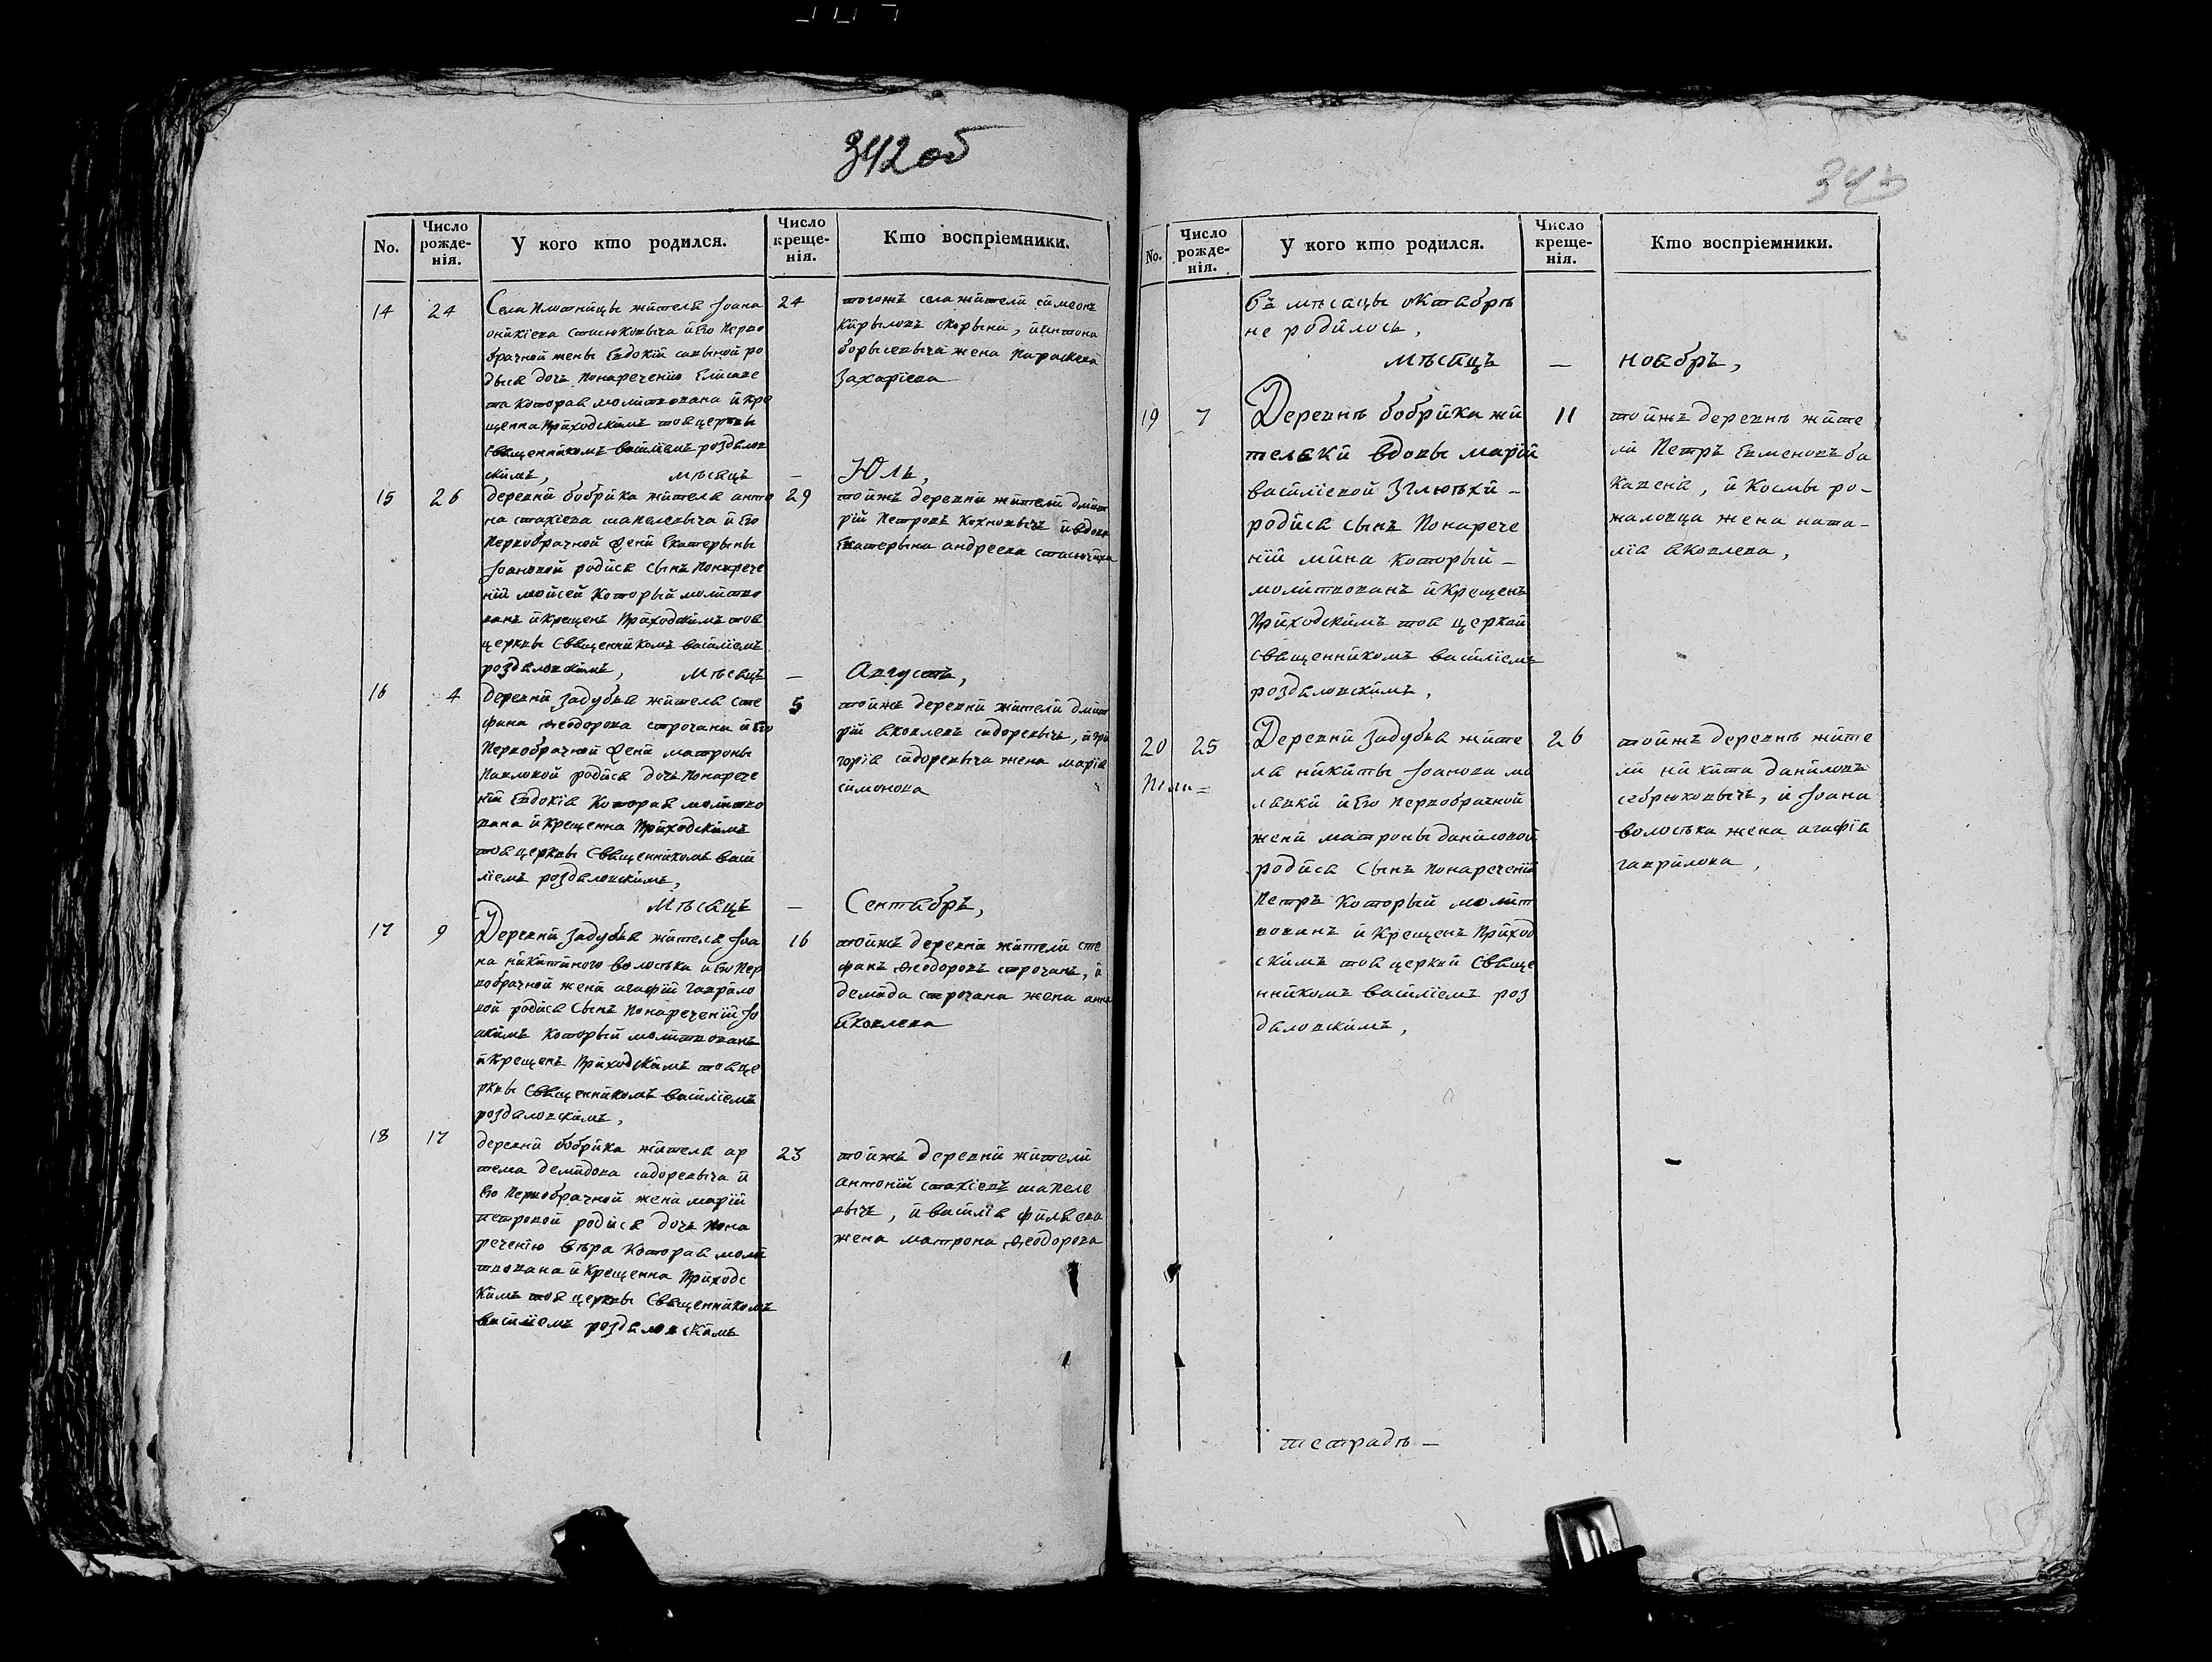 342об
No.
Число рожде-
нія.
У кого кто родился.
Число креще-
нія.
Кто воспріемники.
14
24
Села Плотницы жителя Іоана
оникіева стасюковыча и Его Перво
брачной жены Евдокіи савыной ро
дыся дочь понаречению Елисаве
та Которая молитвована и кре
щенна Приходскимъ тоя церквы
Священникомъ василіемъ роздялов
скимъ,
24
тогожъ села жители симеонъ
Кирыловъ скорына, и антона
борысевыча жена Параскева
Захаріева
мѣсяцъ — Юль,
15
26
деревни бобрика жителя анто
на стахіева шапелевыча и Его
Первобрачной жени Екатерыны
Іоановой родися сынъ Понарече
нїи мойсей Который молитво
ванъ и Крещенъ Приходскимъ тоя
церквы Священникомъ василіемъ
роздяловскимъ,
29
тойжъ деревни жители дмит
рій Петровъ Кохновычъ и вдова
Екатерына андреева стасючиха
Мѣсяцъ — Августъ,
16
4
Деревни задубья жителя сте
фана ѳеодорова строчана и Его
Первобрачной жени матроны
Павловой родися дочь Понарече
нїи Евдокія Которая молитво
вана и Крещенна Приходскимъ
тоя церквы Священникомъ васи
ліемъ роздяловскимъ,
5
тойжъ деревни жители дмит
рій яковлевъ сидоревычъ, и гри
горія сидоревыча жена марія
симонова
Мѣсяцъ — Сентябръ,
17
9
Деревни задубья жителя Іоа
на никитиного волосѣка и Его Пер
вобрачной жени агафіи гаврило
вой родися Сынъ Понареченїи Іо
акимъ Который молитвованъ
и Крещенъ Приходскимъ тоя це
рквы Священникомъ василіемъ
роздяловскимъ,
16
тойжъ деревни жители сте
фанъ ѳеодоровъ строчанъ, и
демида строчана жена анна
Яковлева
18
17
деревни бобрика жителя ар
тема демидова сидоревыча и
Его Первобрачной жени маріи
петровой родися дочь пона
речению вѣра Которая моли
твована и Крещенна Приходс
Кимъ тоя церквы Священникомъ
василіемъ роздяловскимъ
23
тойжъ деревни жители
антоній стахіевъ шапеле
вычъ, и василія филяева
жена матрона ѳеодорова
343
No.
Число рожде-
нія.
У кого кто родился.
Число креще-
нія.
Кто воспріемники.
Въ мѣсяцы октябрѣ
не родилось,
мѣсяцъ — ноябръ,
19
7
Деревнѣ бобрика жи
телки вдовы маріи
василіевой Зглютѣхи -
родися сынъ Понарече
нїи мина Который -
молитвованъ и Крещенъ
Приходскимъ тоя церкви
священникомъ василіемъ
роздяловскимъ,
11
тойжъ деревнѣ жите
ли Петръ Евменовъ ба
кавена, и Космы ро-
жаловца жена ната-
лія яковлева,
20
25
Деревни Задубья жите
ля никиты Іоанова мо
лявки и Его Первобрачной
жени матроны даниловой
родися Сынъ Понареченїи
Петръ Который молит
вованъ и Крещенъ Приход
скимъ тоя церкви Свяще
нникомъ василіемъ роз
дяловскимъ,
26
тойжъ деревнѣ жите
ли никита даниловъ
себрюковычъ, и Іоана
волосѣка жена агафія
гаврилова,
тетрадь —